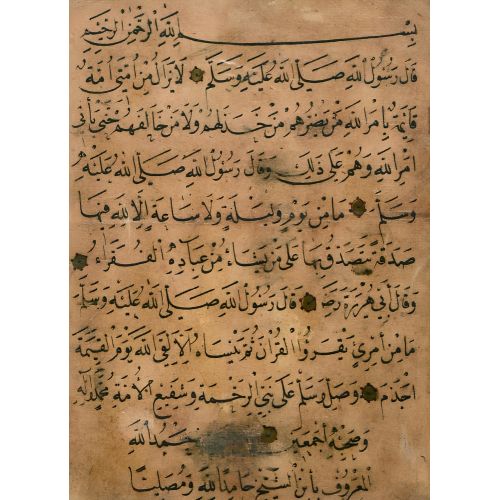 بسم الله الرحمن الرحيم
قال رسول الله صلى الله عليه وسلم لا يزال من امتى امة
قائمة بامر الله من يضرهم من خذلهم ولا من خالفهم حتى ياتى
امر الله وهم على ذلك وقال رسول الله صلى الله عليه
وسلم ما من يوم وليلة ولا ساعة الا لله فيها
صدقة يتصدق بها على من يشاء من عباده الفقراء
وقال ابى هريرة رضه قال رسول الله صلى الله عليه وسلم
ما من امرئ يقرؤ القران ثم ينساه الا لقى الله يوم القيمة
اجذم وصل وسلم على نبى الرحمة وشفيع الامة محمد واله
وصحبه اجمعين حمد الله
المعروف بابن الشيخ حامدا لله ومصليا